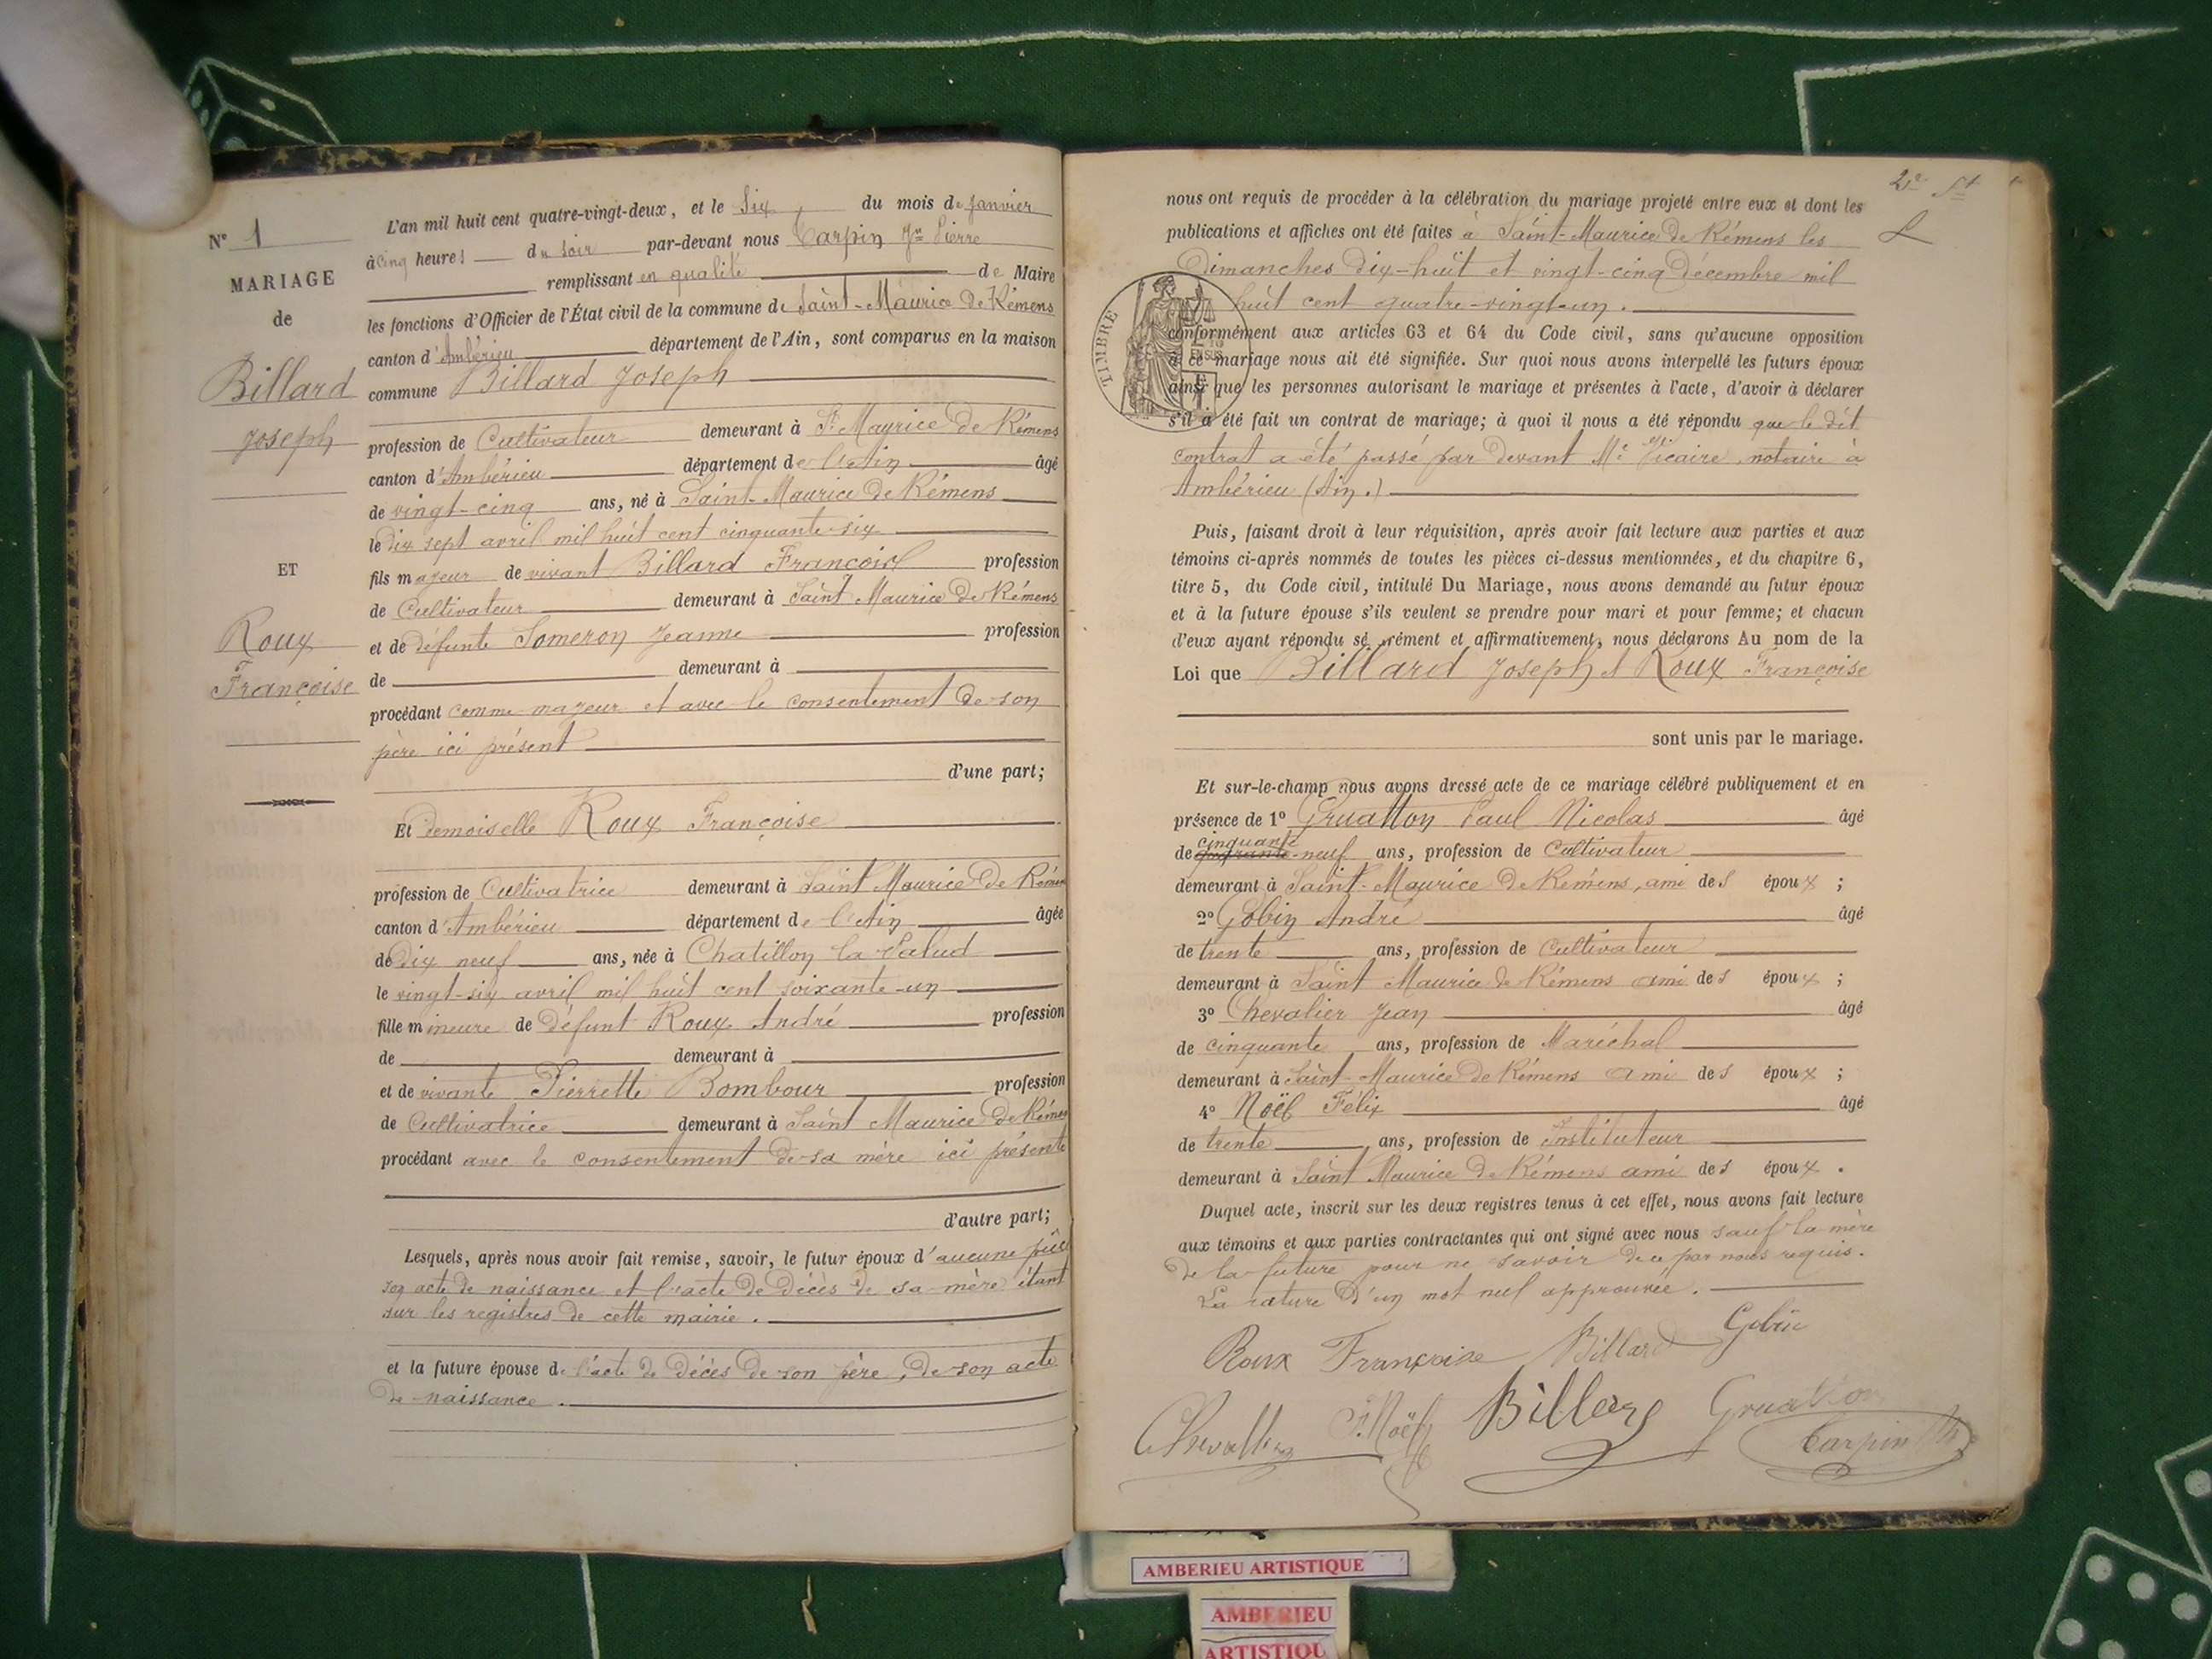 Nº 1
MARIAGE
de
Billard
Joseph
ET
Roux
Françoise
L'an mil huit cent quatre-vingt-deux, et le Six, du mois de Janvier
à cinq heures du soir par-devant nous Carpin Pierre
remplissant en qualité de Maire
les fonctions d'Officier de l'État civil de la commune de Saint-Maurice de Rémens
canton d'Ambérieu département de l'Ain, sont comparus en la maison
commune Billard Joseph
profession de Cultivateur demeurant à St Maurice de Rémens
canton d'Ambérieu département de l'Ain âgé
de vingt-cinq ans, né à Saint-Maurice de Rémens
le dix sept avril mil huit cent cinquante-six
fils majeur de vivant Billard François profession
de Cultivateur demeurant à Saint Maurice de Rémens
et de défunte Someron Jeanne profession
de demeurant à
procédant comme majeur et avec le consentement de son
père ici présent
d'une part;
Et demoiselle Roux Françoise
profession de Cultivatrice demeurant à Saint Maurice de Rémens
canton d'Ambérieu département de l'Ain âgée
de Dix neuf ans, née à Chatillon la Palud
le vingt-six avril mil huit cent soixante-un
fille mineure de Défunt Roux André profession
de demeurant à
et de vivante Pierrette Bombour profession
de Cultivatrice demeurant à Saint Maurice de Rémens
procédant avec le consentement de sa mère ici présente
d'autre part;
Lesquels, après nous avoir fait remise, savoir, le futur époux d'aucune pièce
son acte de naissance et l'acte de Décès de sa mère étant
sur les registres de cette mairie.
et la future épouse de l'acte de Décès de son père, de son acte
de naissance.
2e
nous ont requis de procéder à la célébration du mariage projeté entre eux et dont les
publications et affiches ont été faites à Saint-Maurice de Rémens les
Dimanches Dix-huit et vingt-cinq Décembre mil
huit cent quatre-vingt-un.
TIMBRE
EN SUS
conformément aux articles 63 et 64 du Code civil, sans qu'aucune opposition
à ce mariage nous ait été signifiée. Sur quoi nous avons interpellé les futurs époux
ainsi que les personnes autorisant le mariage et présentes à l'acte, d'avoir à déclarer
s'il a été fait un contrat de mariage; à quoi il nous a été répondu que le dit
contrat a été passé par devant Me Vicaire notaire à
Ambérieu (Ain.)
Puis, faisant droit à leur réquisition, après avoir fait lecture aux parties et aux
témoins ci-après nommés de toutes les pièces ci-dessus mentionnées, et du chapitre 6,
titre 5, du Code civil, intitulé Du Mariage, nous avons demandé au futur époux
et à la future épouse s'ils veulent se prendre pour mari et pour femme; et chacun
d'eux ayant répondu séparément et affirmativement, nous déclarons Au nom de la
Loi que Billard Joseph et Roux Françoise
sont unis par le mariage.
Et sur-le-champ nous avons dressé acte de ce mariage célébré publiquement et en
présence de 1º Gruatton Paul Nicolas âgé
cinquante
de quarante-neuf ans, profession de Cultivateur
demeurant à Saint-Maurice de Rémens, ami des époux ;
2º Gobin André âgé
de trente ans, profession de Cultivateur
demeurant à Saint Maurice de Rémens ami des époux ;
3º Chevalier Jean âgé
de cinquante ans, profession de Maréchal
demeurant à Saint-Maurice de Rémens ami des époux ;
4º Noël Félix âgé
de trente ans, profession de Instituteur
demeurant à Saint Maurice de Rémens ami des époux.
Duquel acte, inscrit sur les deux registres tenus à cet effet, nous avons fait lecture
aux témoins et aux parties contractantes qui ont signé avec nous sauf la mère
de la future pour ne savoir de ce par nous requis.
La rature d'un mot nul approuvée.
Roux Françoise Billard Gobin
Chevallier F. Noël Billard Gruatton
Carpin
AMBERIEU ARTISTIQUE
AMBERIEU
ARTISTIQU